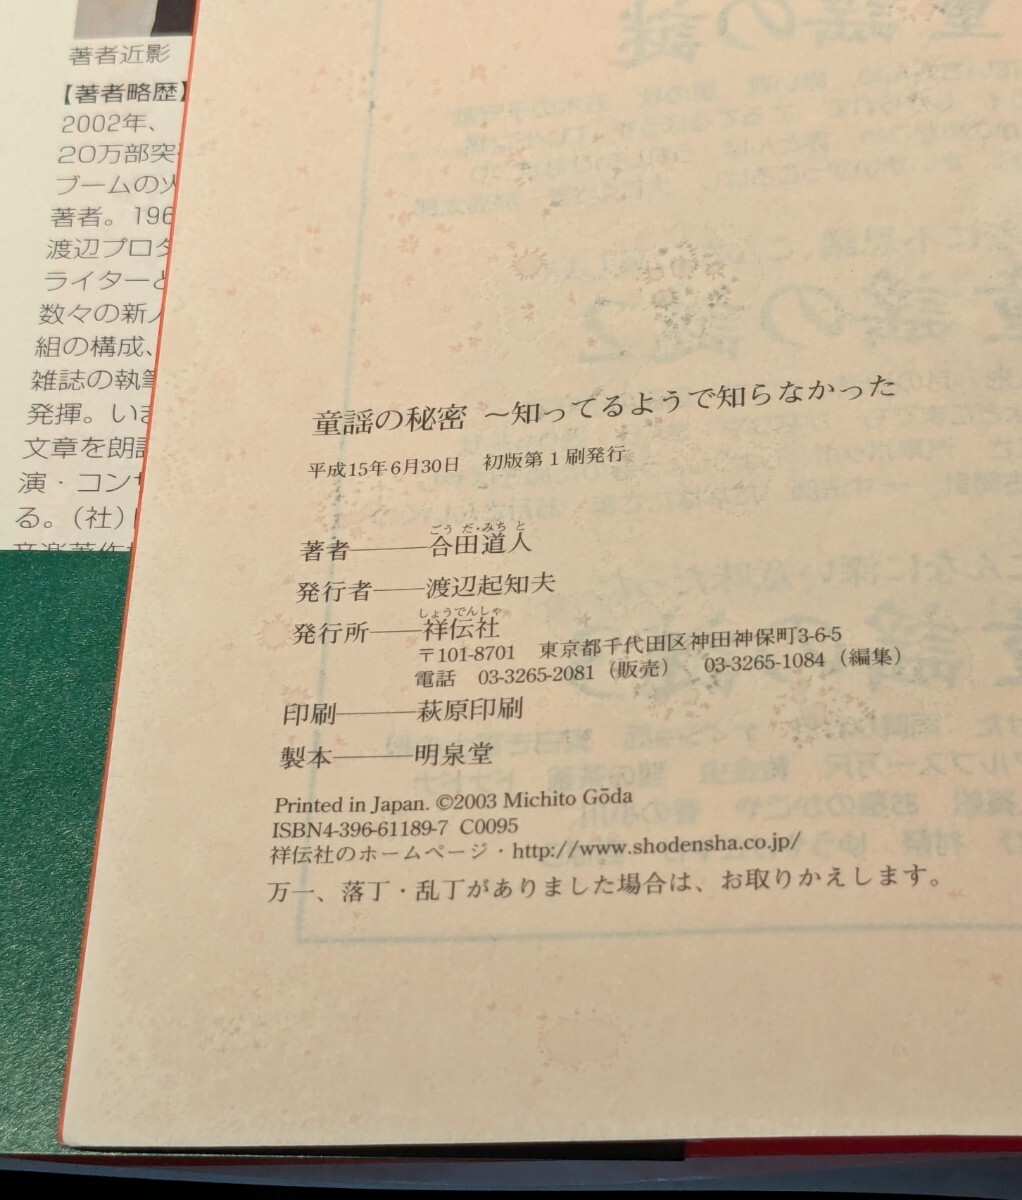 著者近影
【著者略歴】
2002年、
20万部突
ブームの火
著者。196
渡辺プロダ
ライターと
数々の新人
組の構成、
雑誌の執筆
発揮。いま
文章を朗読
演・コンサ
る。（社）
音楽著作
童謡の秘密 ～知ってるようで知らなかった
平成15年6月30日 初版第1刷発行
ごう だ・みち と
著者―――合田道人
発行者――渡辺起知夫
しょうでんしゃ
発行所――祥伝社
〒101-8701 東京都千代田区神田神保町3-6-5
電話 03-3265-2081（販売） 03-3265-1084（編集）
印刷―――萩原印刷
製本―――明泉堂
Printed in Japan. ©2003 Michito Gōda
ISBN4-396-61189-7 C0095
祥伝社のホームページ・http://www.shodensha.co.jp/
万一、落丁・乱丁がありました場合は、お取りかえします。